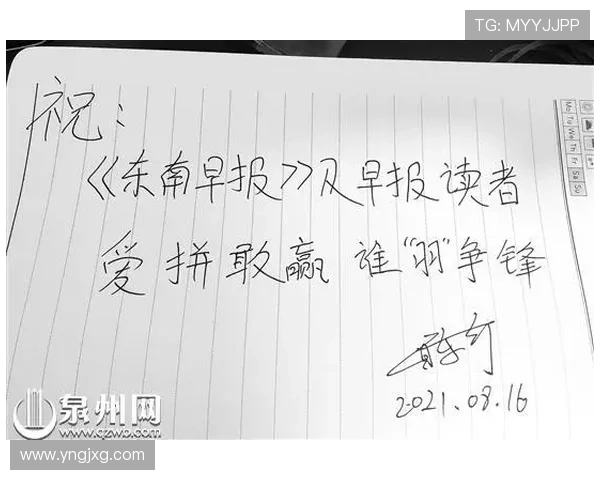 TG: MYYJJPP
祝：
《东南早报》及早报读者
爱拼敢赢 谁"羽"争锋
2021.08.16
Mo Tu We Th Fr Sa Su
泉州网
www.qzwb.com
www.yngjxg.com